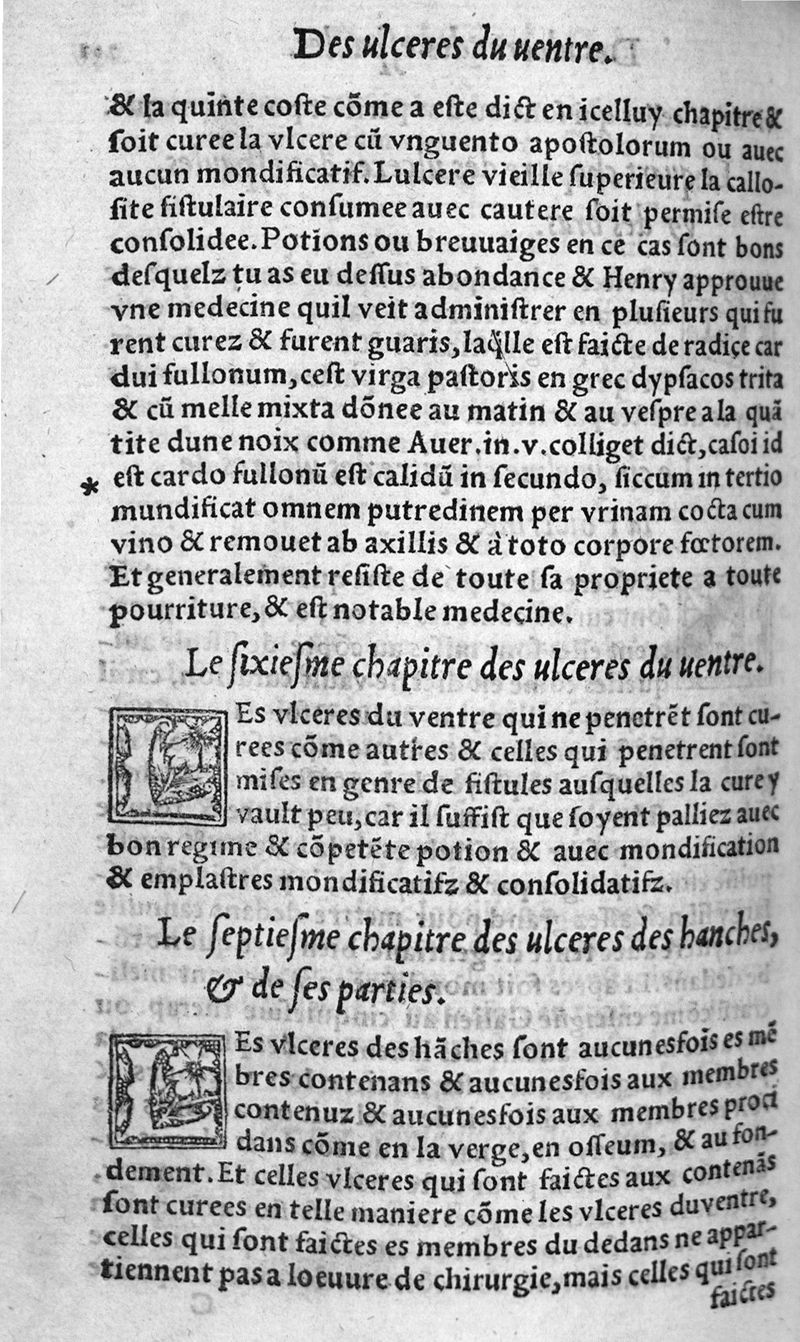 Des ulceres du uentre.
& la quinte coſte cõme a eſte dict en icelluy chapitre &
ſoit curee la vlcere cũ vnguento apoſtolorum ou auec
aucun mondificatif. Lulcere vieille ſuperieure la callo-
ſite fiſtulaire conſumee auec cautere ſoit permiſe eſtre
conſolidee. Potions ou breuuaiges en ce cas ſont bons
deſquelz tu as eu deſſus abondance & Henry approuue
vne medecine quil veit adminiſtrer en pluſieurs qui fu
rent curez & furent guaris, laq̃lle eſt faicte de radice car
dui fullonum, ceſt virga paſtoris en grec dypſacos trita
& cũ melle mixta dõnee au matin & au veſpre a la quã
tite dune noix comme Auer. in. v. colliget dict, caſoi id
* eſt cardo fullonũ eſt calidũ in ſecundo, ſiccum in tertio
mundificat omnem putredinem per vrinam cocta cum
vino & remouet ab axillis & à toto corpore fœtorem.
Et generalement reſiſte de toute ſa propriete a toute
pourriture, & eſt notable medecine.
Le ſixieſme chapitre des ulceres du uentre.
LEs vlceres du ventre qui ne penetrẽt ſont cu-
rees cõme autres & celles qui penetrent ſont
miſes en genre de fiſtules auſquelles la cure y
vault peu, car il ſuffiſt que ſoyent palliez auec
bon regime & cõpetẽte potion & auec mondification
& emplaſtres mondificatifz & conſolidatifz.
Le ſeptieſme chapitre des ulceres des hanches,
& de ſes parties.
LEs vlceres des hãches ſont aucunesfois es mẽ
bres contenans & aucunesfois aux membres
contenuz & aucunesfois aux membres proci
dans cõme en la verge, en oſſeum, & au fon-
dement. Et celles vlceres qui ſont faictes aux contenãs
ſont curees en telle maniere cõme les vlceres du ventre,
celles qui ſont faictes es membres du dedans ne appar-
tiennent pas a loeuure de chirurgie, mais celles qui ſont
faictes